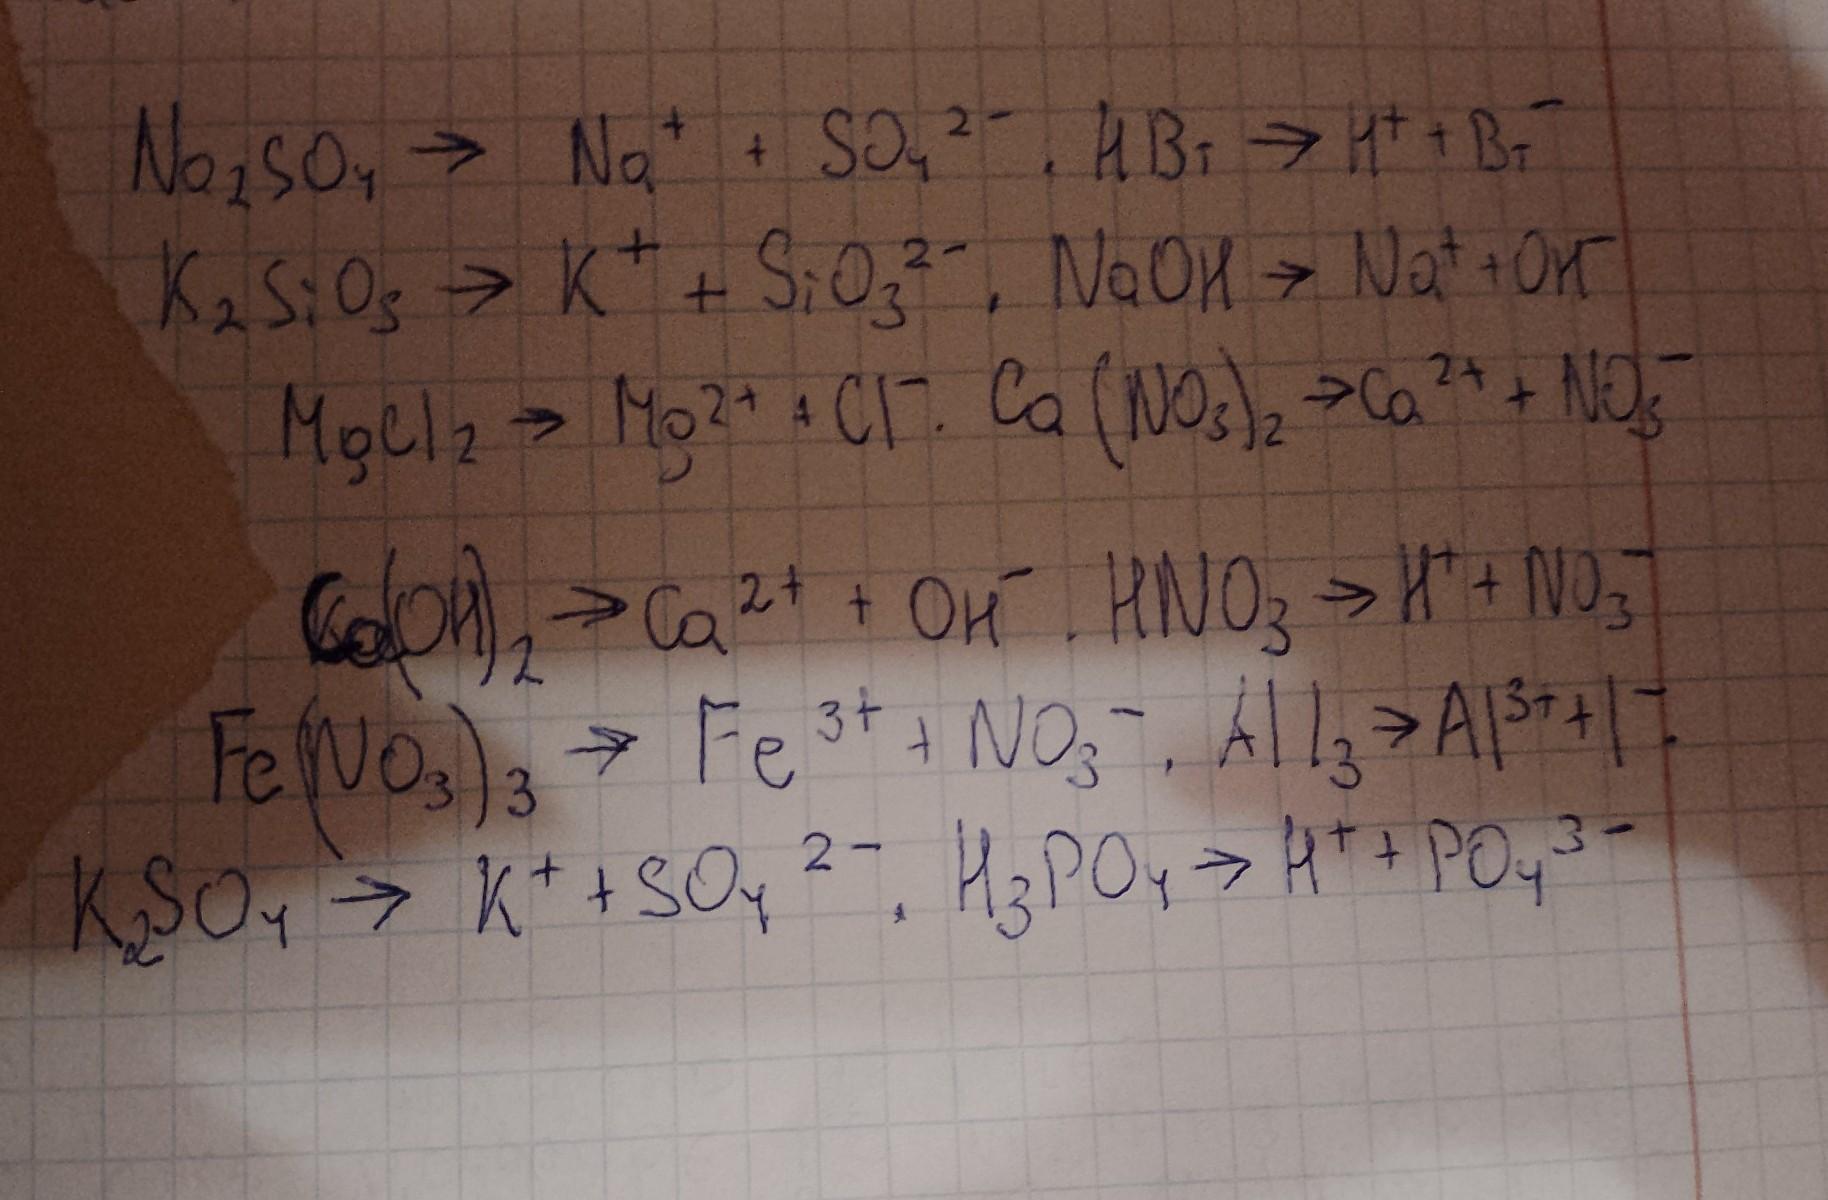 Na₂SO₄ → Na⁺ + SO₄²⁻. HBr → H⁺ + Br⁻
K₂SiO₃ → K⁺ + SiO₃²⁻. NaOH → Na⁺ + OH⁻
MgCl₂ → Mg²⁺ + Cl⁻. Ca(NO₃)₂ → Ca²⁺ + NO₃⁻
Ca(OH)₂ → Ca²⁺ + OH⁻. HNO₃ → H⁺ + NO₃⁻
Fe(NO₃)₃ → Fe³⁺ + NO₃⁻. AlI₃ → Al³⁺ + I⁻.
K₂SO₄ → K⁺ + SO₄²⁻. H₃PO₄ → H⁺ + PO₄³⁻